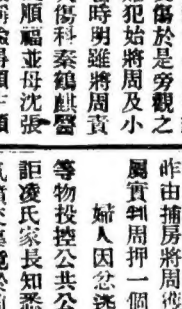 傷於是旁觀之
犯始將周及小
時明雖將周責
傷科秦鶴麒醫
順福並母沈張
昨由捕房將周
屬實判周押一個
婦人因忿
等物投控公共公
詎凌氏家長知悉